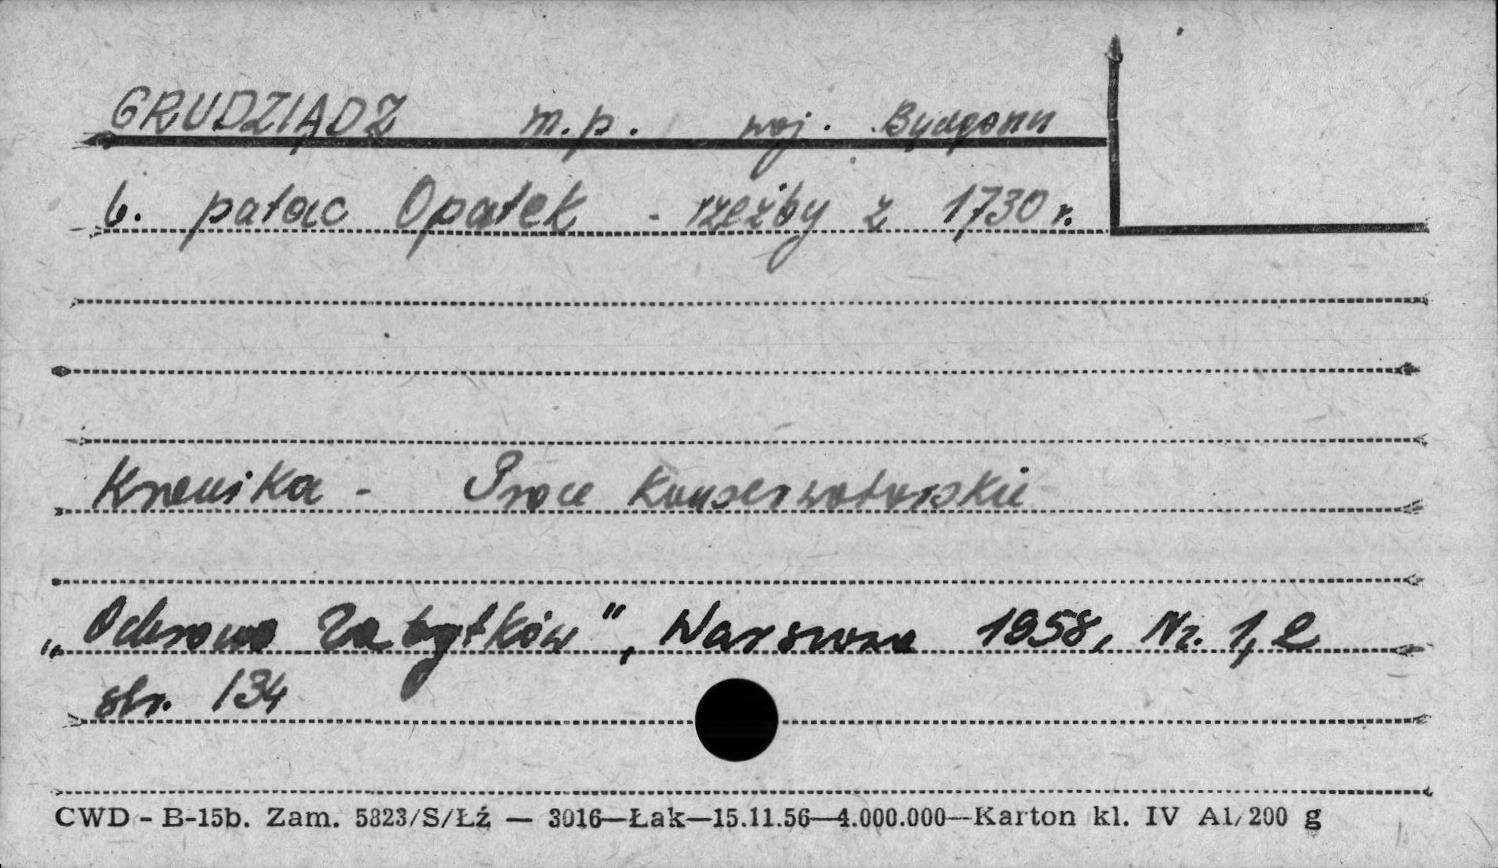 GRUDZIĄDZ m.p. woj. Bydgoszcz
b. pałac Opatek - rzeźby z 1730 r.
Kronika - Prace konserwatorskie
„Ochrona Zabytków", Warszawa 1958, Nr. 1,2
str. 134
CWD - B-15b. Zam. 5823/S/Łź — 3016—Łak—15.11.56—4.000.000—Karton kl. IV A1/200 g